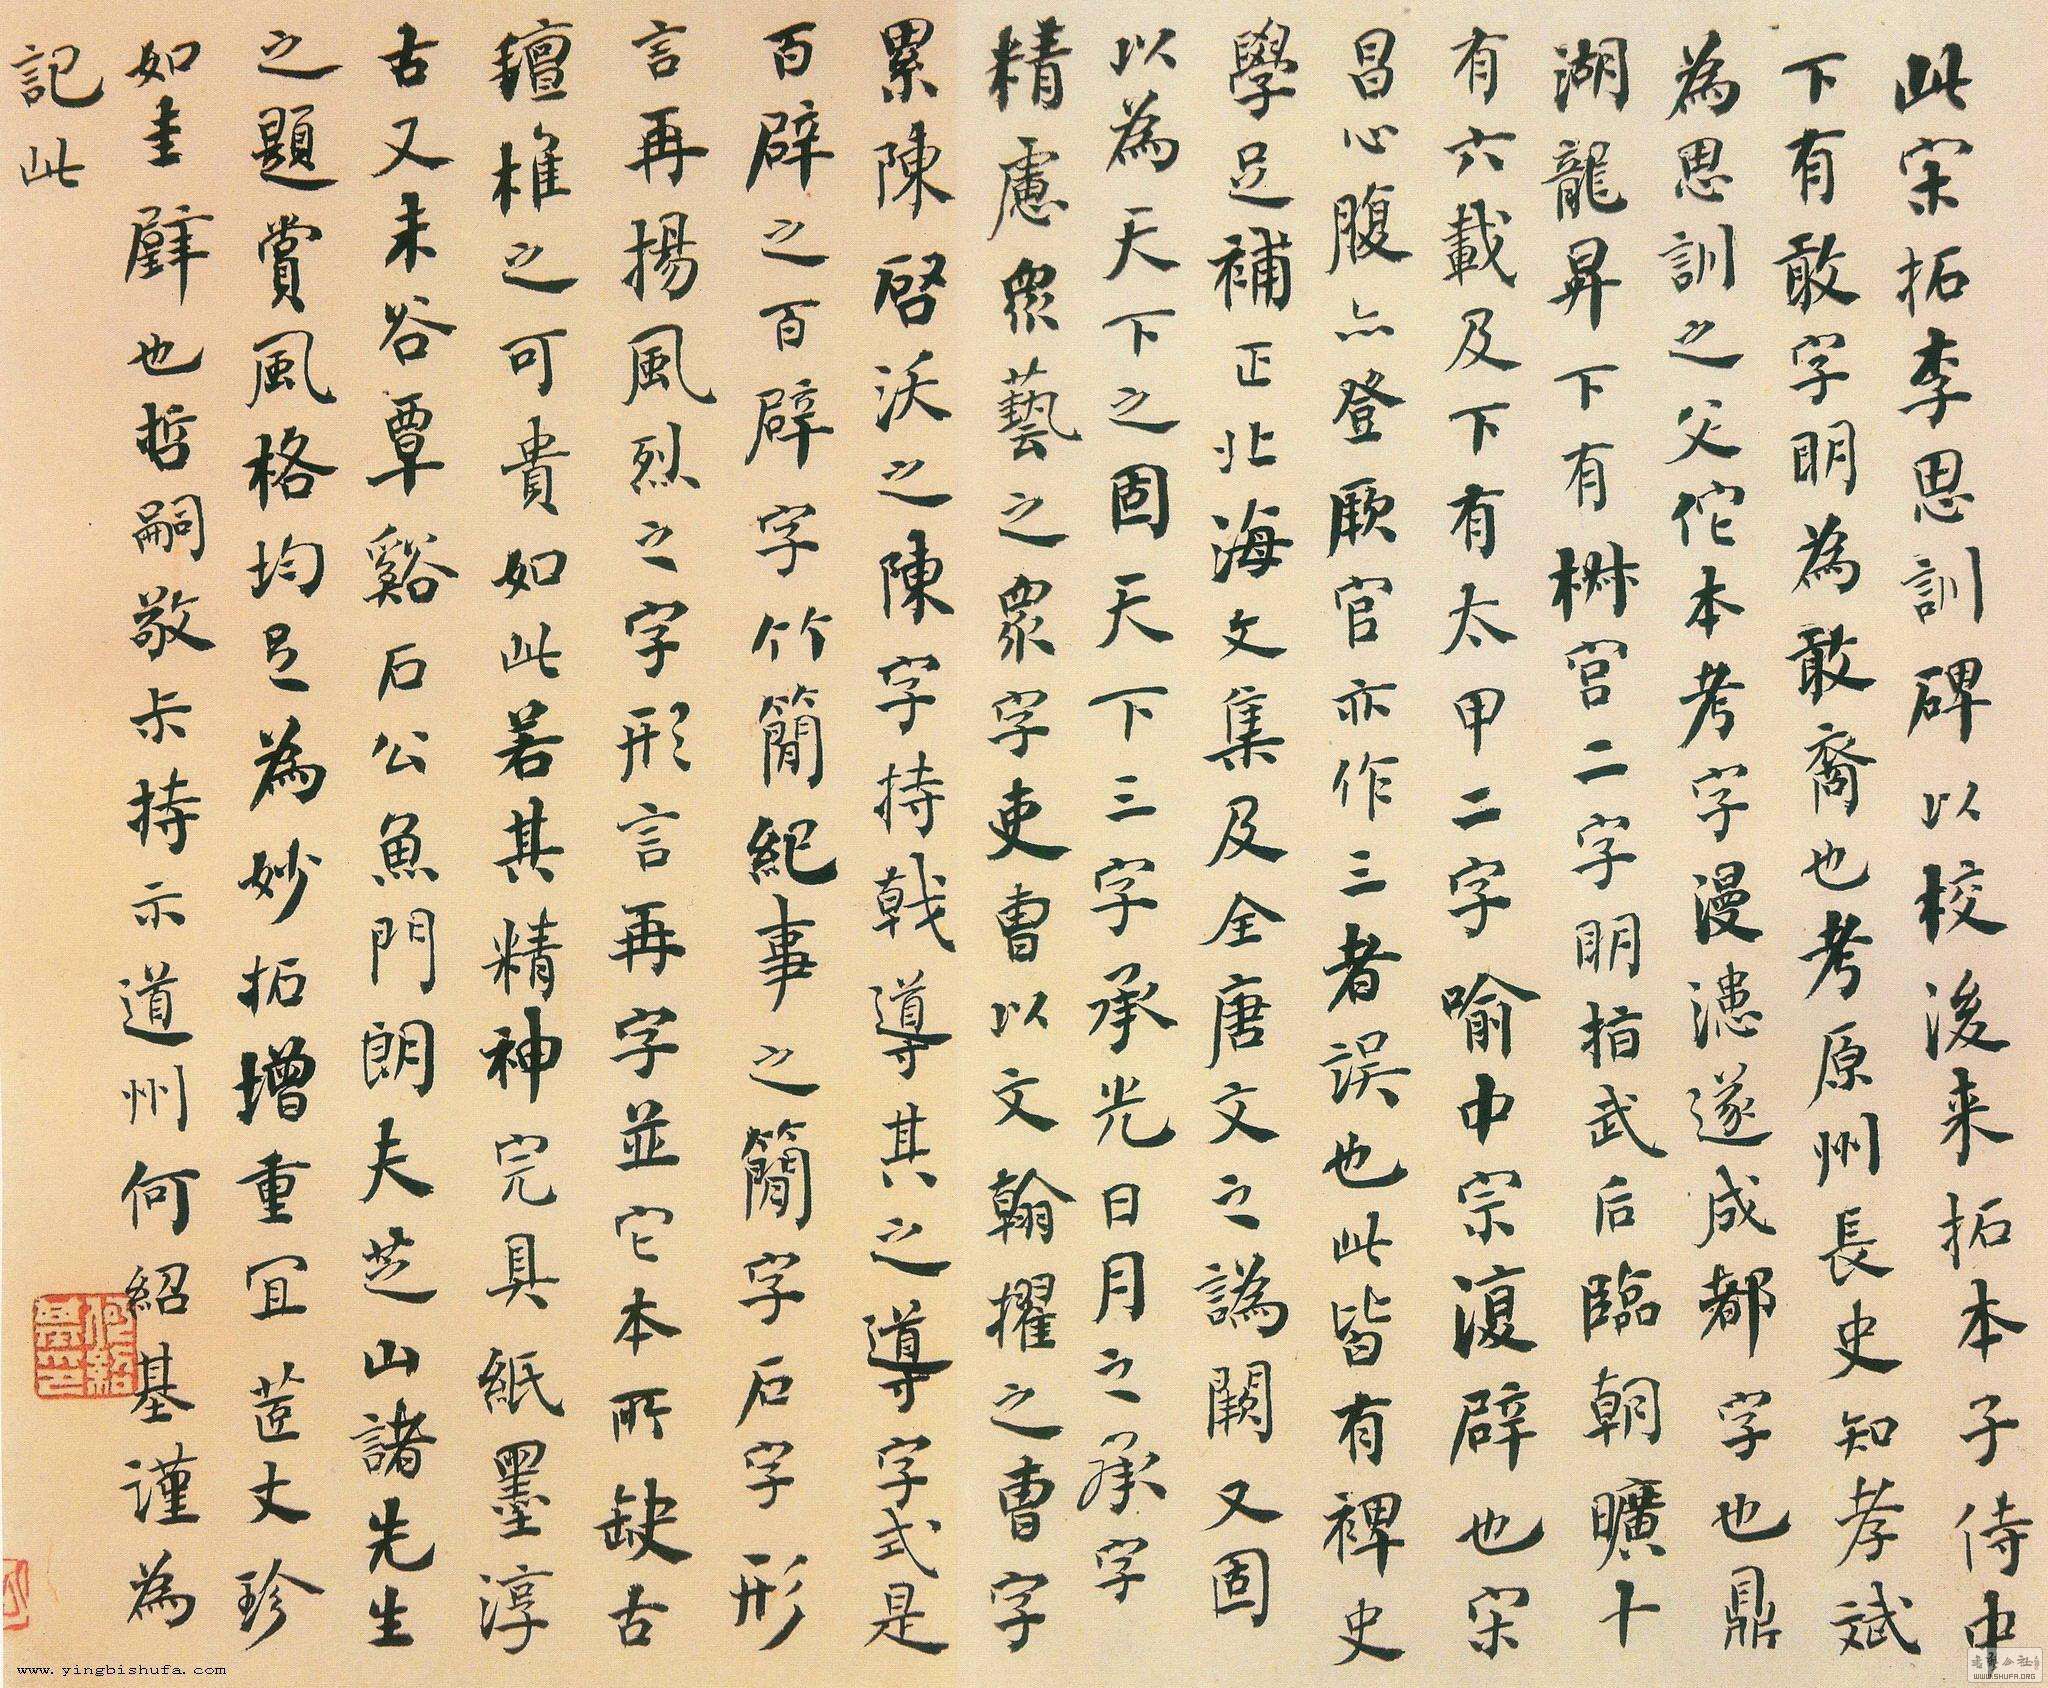 此宋拓李思訓碑以校後来拓本子侍中
下有敢字明為敢裔也考原州長史知孝斌
為思訓之父佗本考字漫漶遂成都字也鼎
湖龍昇下有桝宮二字明指武后臨朝曠十
有六載及下有太甲二字喻中宗復辟也宋
昌心腹亦登厥官亦作三者誤也此皆有裨史
學足補正北海文集及全唐文之譌闕又固
以為天下之固天下三字承光日月之承字
精慮眾藝之眾字吏曹以文翰擢之曹字
累陳啓沃之陳字持戟導其之導字式是
百辟之百辟字竹簡紀事之簡字后字形
言再揚風烈之字形言再字並它本所缺古
氊椎之可貴如此若其精神完具紙墨淳
古又未谷覃谿石公魚門朗夫芝山諸先生
之題賞風格均足為妙拓增重宜茝丈珍
如圭璧也哲嗣敬 持示道州何紹基謹為
記此
www.yingbishufa.com
WWW.SHUFA.ORG